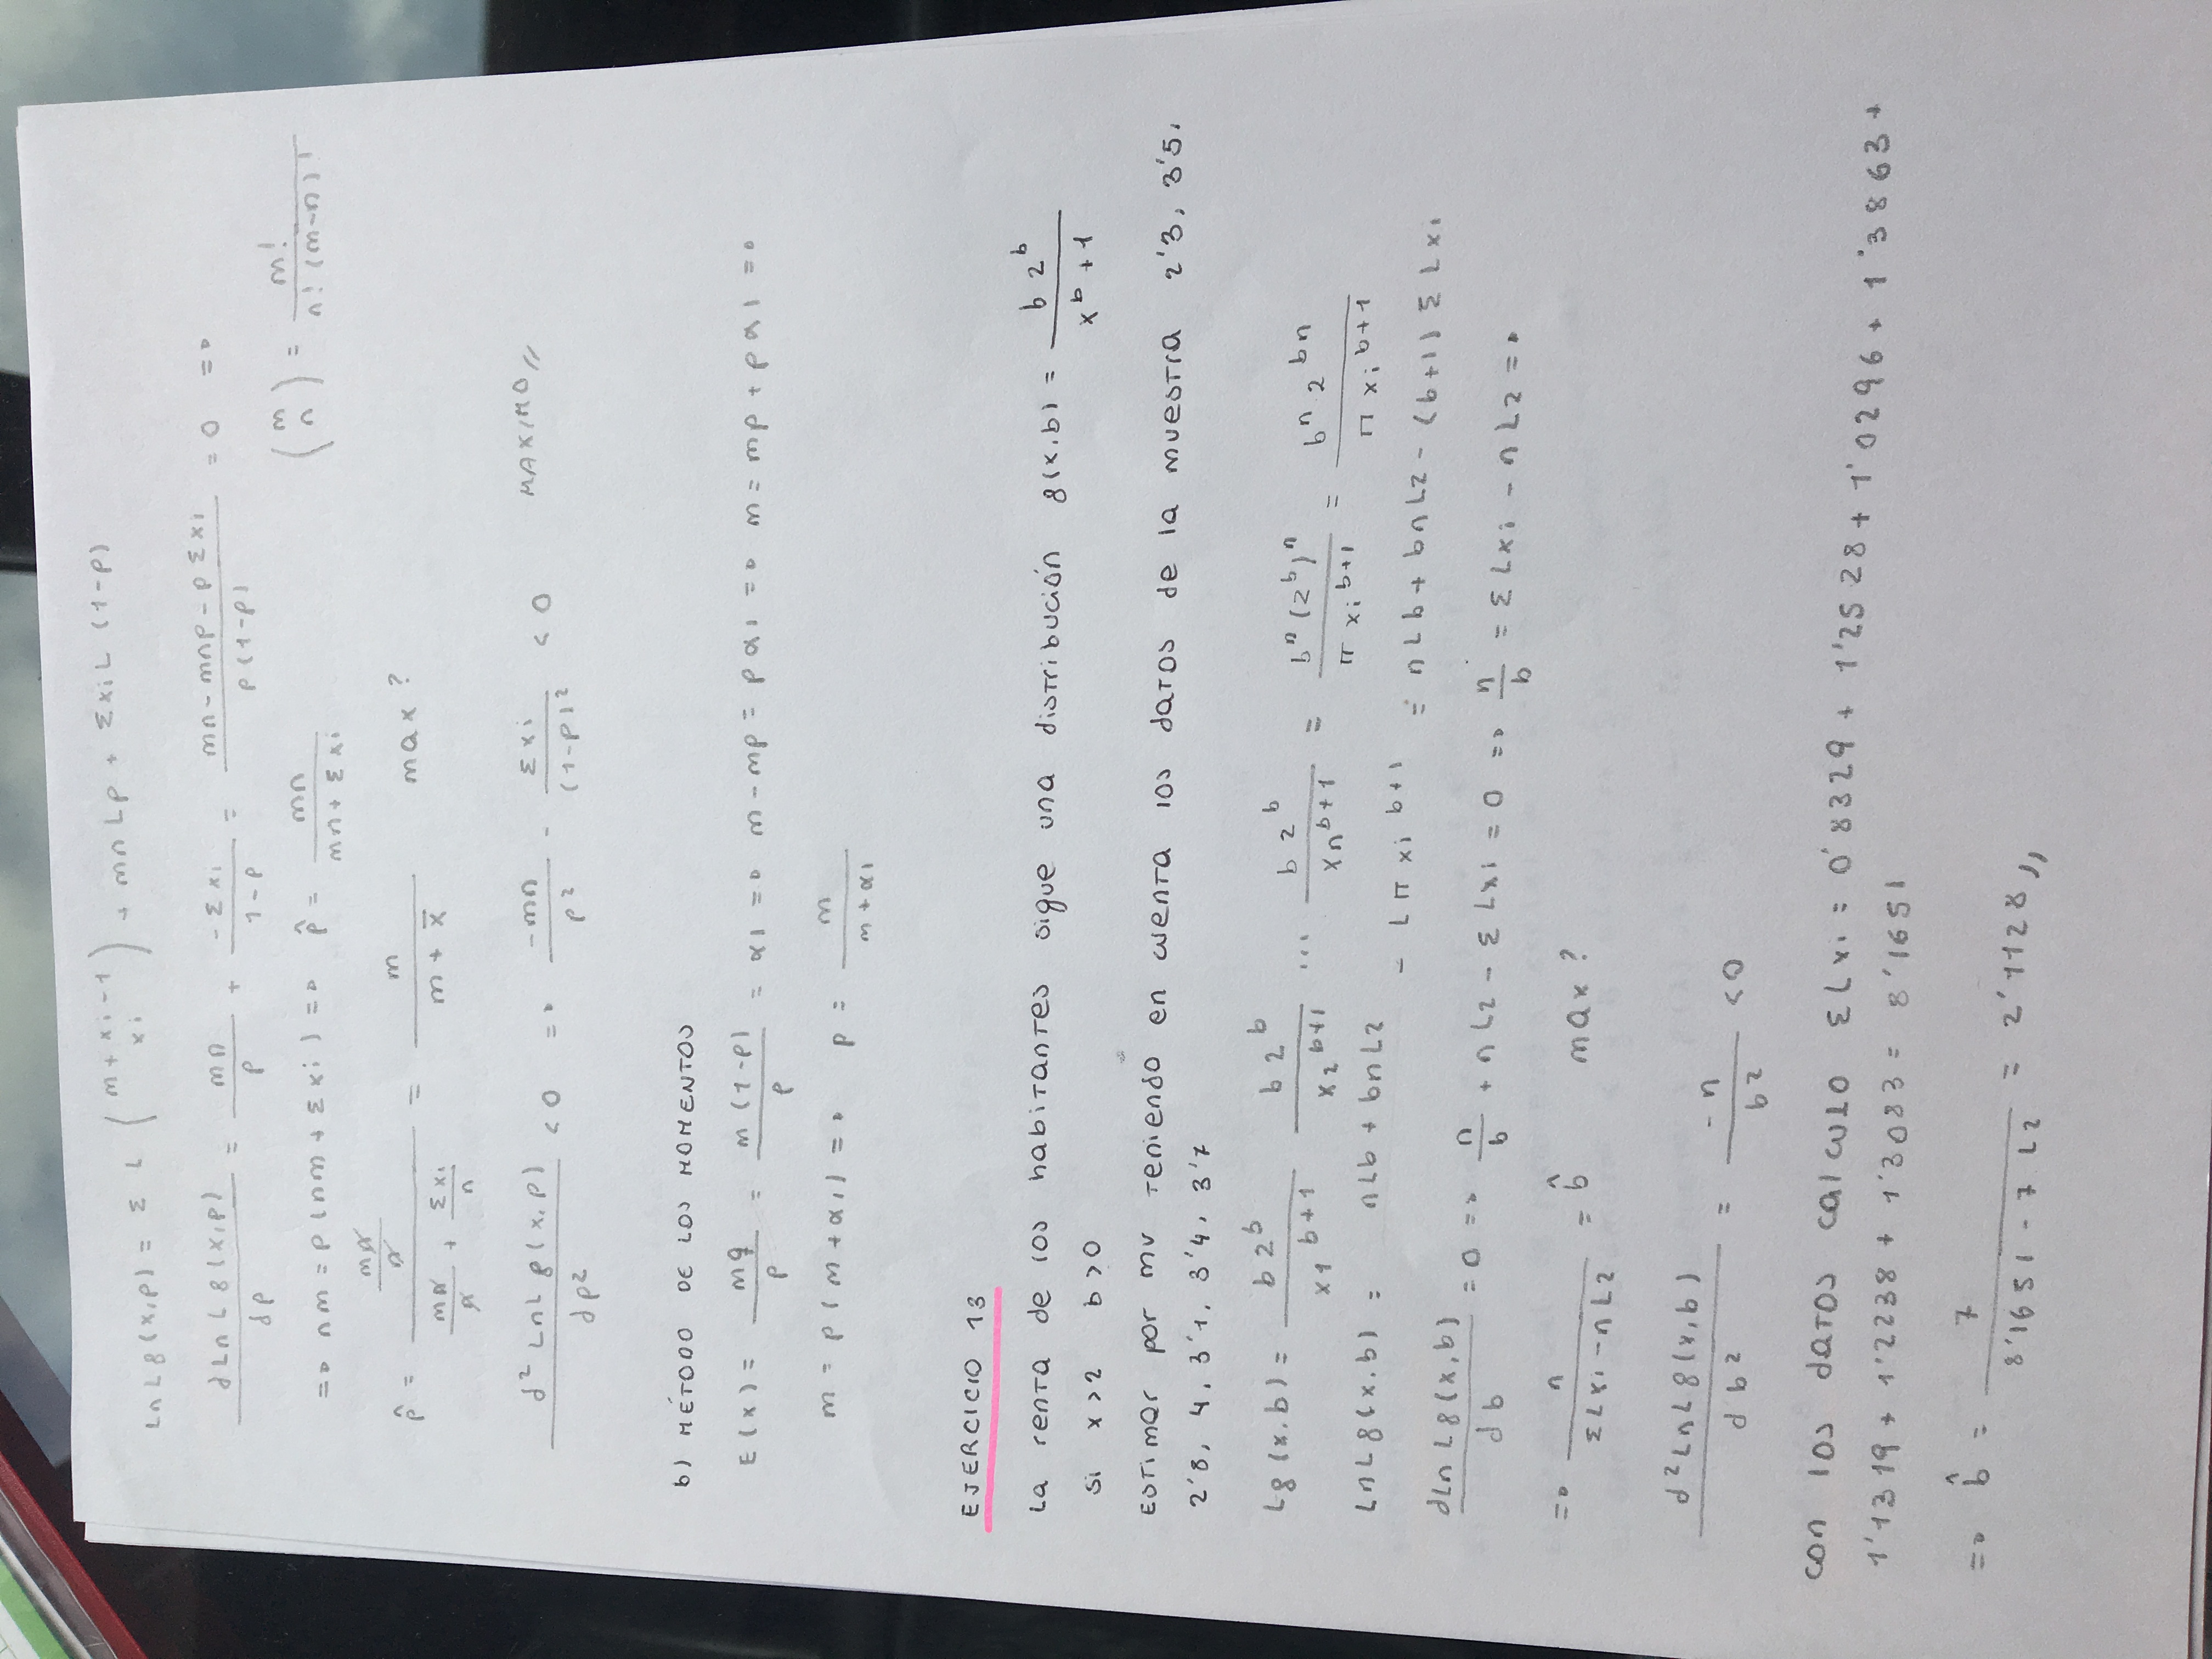 LnLf(x,p) = Σ L (m+xi-1 / xi) + mnLp + ΣxiL (1-p)
dLnLf(x,p) / dp = mn / p + -Σxi / 1-p = mn-mnp-pΣxi / p(1-p) = 0 =>
=> nm = p(nm+Σxi) => p̂ = mn / mn+Σxi
(m / n) = m! / n!(m-n)!
p̂ = (mn / n) / (mn / n + Σxi / n) = m / m+x̄ max?
d²LnLf(x,p) / dp² < 0 => -mn / p² - Σxi / (1-p)² < 0 MAXIMO,,
b) MÉTODO DE LOS MOMENTOS
E(x) = mq / p = m(1-p) / p = α1 => m-mp = pα1 => m = mp+pα1 =>
m = p(m+α1) => p = m / m+α1
EJERCICIO 13
La renta de los habitantes sigue una distribución f(x,b) = b2^b / x^b+1
si x>2 b>0
Estimar por mv teniendo en cuenta los datos de la muestra 2'3, 3'5,
2'8, 4, 3'1, 3'4, 3'7
Lf(x,b) = b2^b / x1^b+1 b2^b / x2^b+1 ... b2^b / xn^b+1 = b^n(2^b)^n / πxi^b+1 = b^n 2^bn / πxi^b+1
LnLf(x,b) = nLb + bnL2 - Lπxi^b+1 = nLb + bnL2 - (b+1)ΣLxi
dLnLf(x,b) / db = 0 => n / b + nL2 - ΣLxi = 0 => n / b = ΣLxi - nL2 =>
=> n / ΣLxi-nL2 = b̂ max?
d²LnLf(x,b) / db² = -n / b² < 0
con los datos calculo ΣLxi = 0'8329 + 1'2528 + 1'0296 + 1'3863 +
1'1319 + 1'2238 + 1'3083 = 8'1651
=> b̂ = 7 / 8'1651-7L2 = 2'1128,,